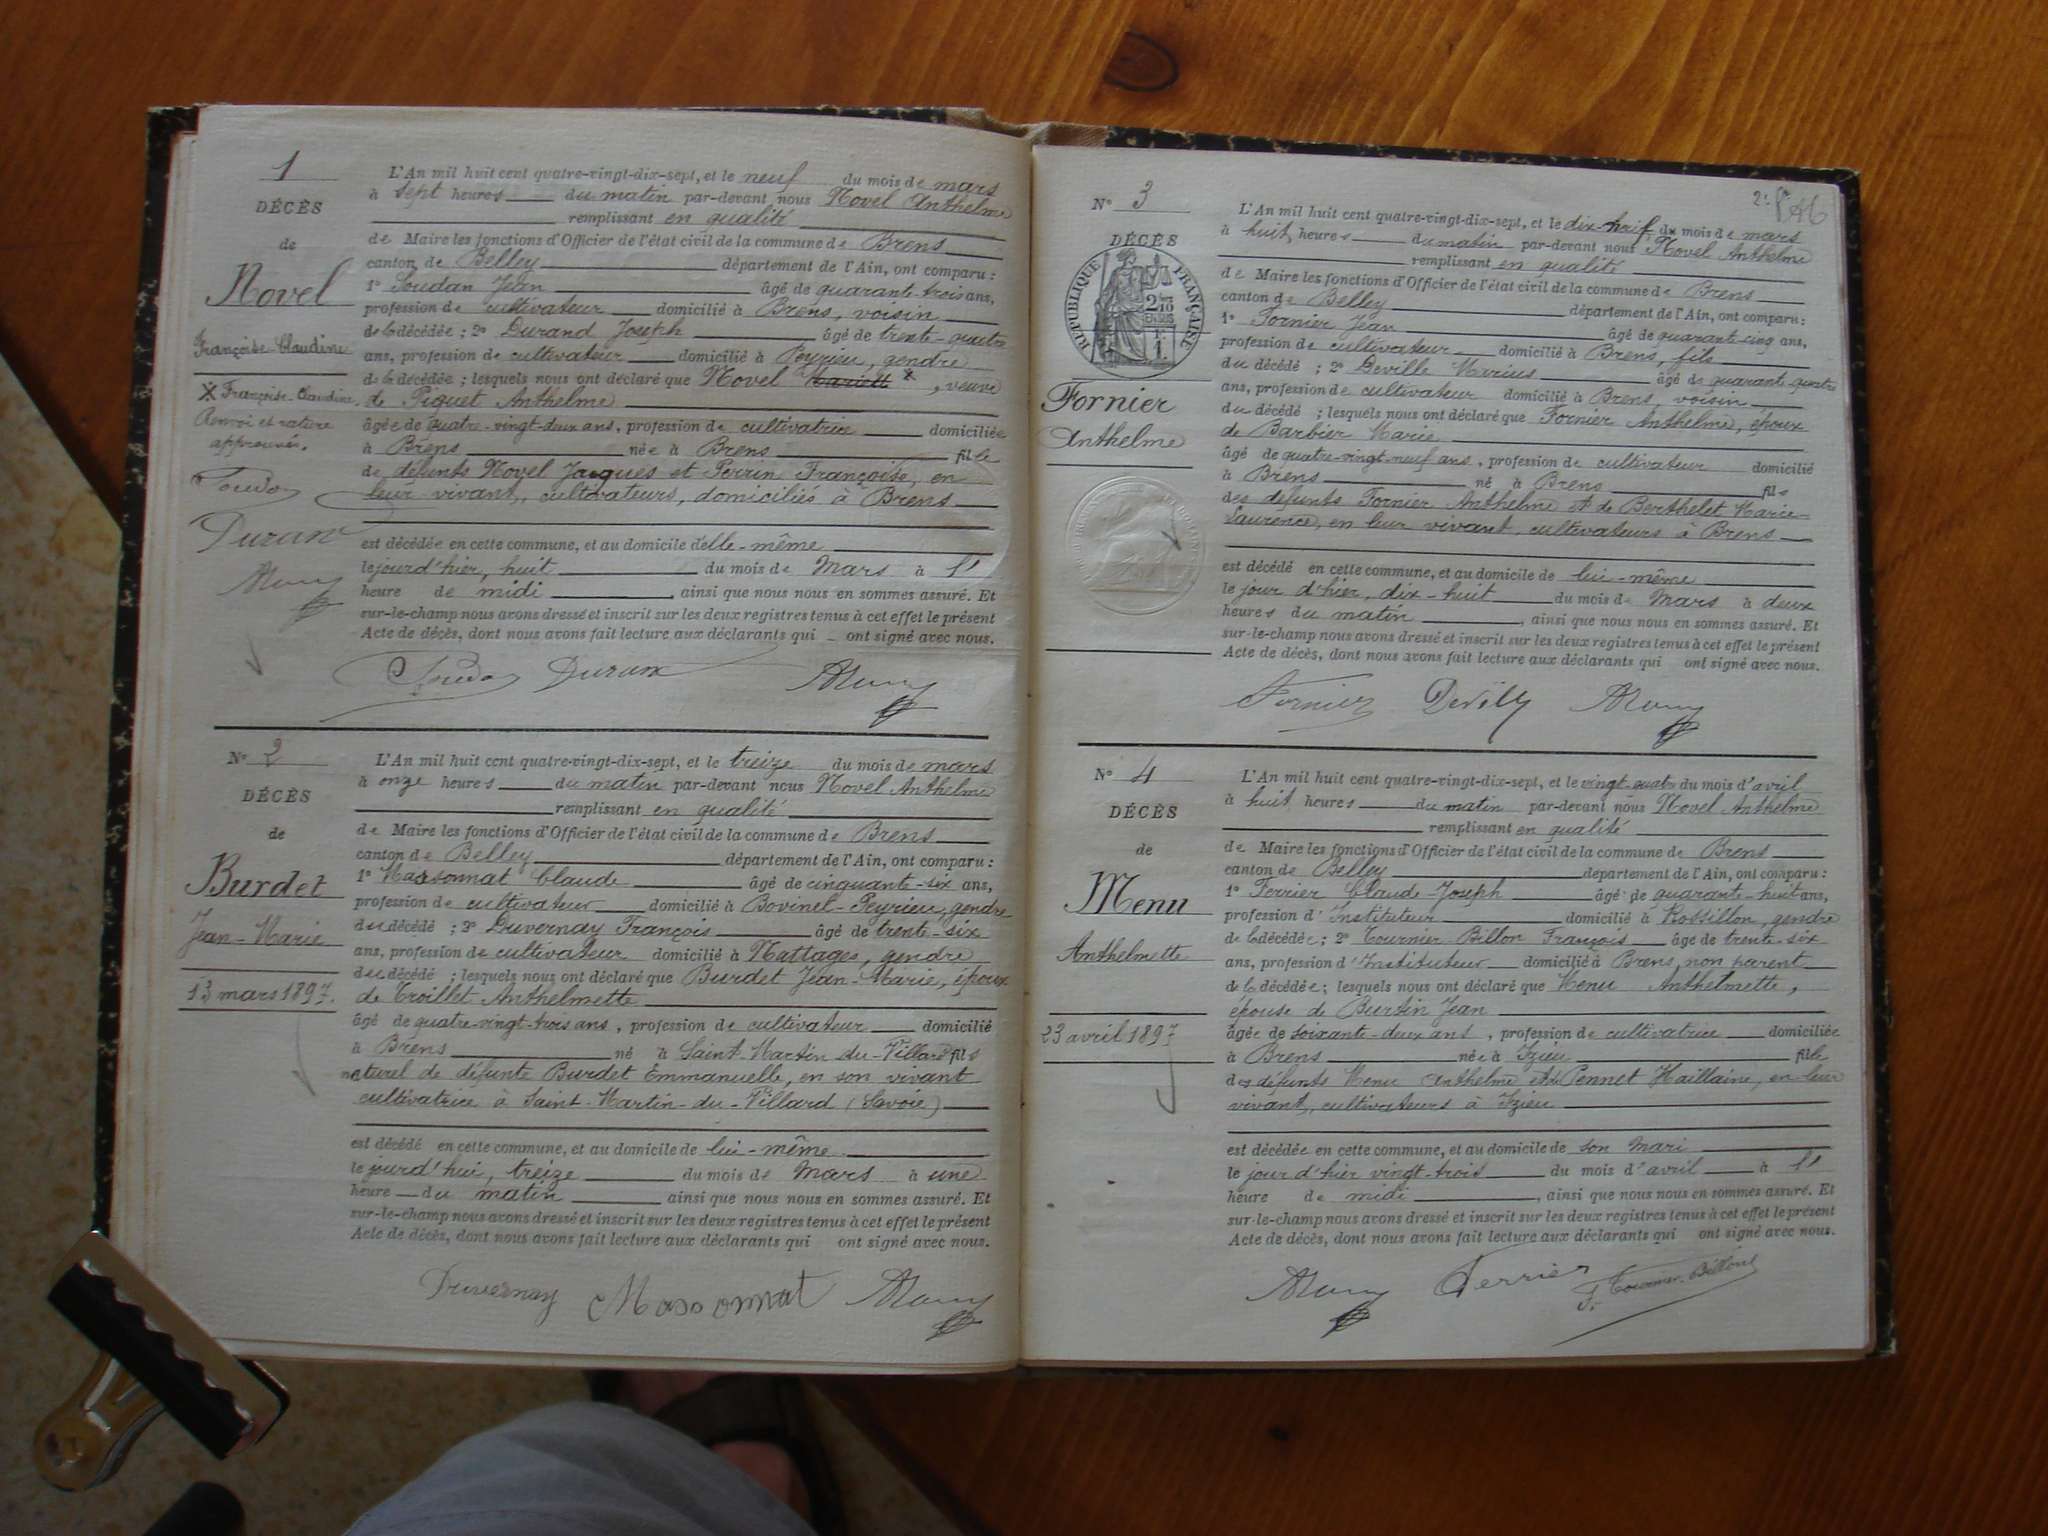 1
DÉCÈS
de
Novel
Françoise-Claudine
X Françoise-Claudine.
Renvoi et rature
approuvés.
Soudan
Durand
L'An mil huit cent quatre-vingt-dix-sept, et le neuf du mois de mars
à sept heures du matin par-devant nous Novel Anthelme
remplissant en qualité
de Maire les fonctions d'Officier de l'état civil de la commune de Brens
canton de Belley département de l'Ain, ont comparu :
1° Soudan Jean âgé de quarante-trois ans,
profession de cultivateur domicilié à Brens, voisin
de la décédée ; 2° Durand Joseph âgé de trente-quatre
ans, profession de cultivateur domicilié à Peyrieu, gendre
de la décédée ; lesquels nous ont déclaré que Novel X, veuve
de Piquet Anthelme
âgée de quatre-vingt-deux ans, profession de cultivatrice domiciliée
à Brens née à Brens fille
de défunts Novel Jacques et Perrin Françoise, en
leur vivant, cultivateurs, domiciliés à Brens
est décédée en cette commune, et au domicile d'elle-même
le jour d'hier, huit du mois de Mars à l'
heure de midi, ainsi que nous nous en sommes assuré. Et
sur-le-champ nous avons dressé et inscrit sur les deux registres tenus à cet effet le présent
Acte de décès, dont nous avons fait lecture aux déclarants qui ont signé avec nous.
Durand
N° 2
DÉCÈS
de
Burdet
Jean-Marie
13 mars 1897.
L'An mil huit cent quatre-vingt-dix-sept, et le treize du mois de mars
à onze heures du matin par-devant nous Novel Anthelme
remplissant en qualité
de Maire les fonctions d'Officier de l'état civil de la commune de Brens
canton de Belley département de l'Ain, ont comparu :
1° Massonnat Claude âgé de cinquante-six ans,
profession de cultivateur domicilié à Bovinel-Peyrieu, gendre
du décédé ; 2° Duvernay François âgé de trente-six
ans, profession de cultivateur domicilié à Nattages, gendre
du décédé ; lesquels nous ont déclaré que Burdet Jean-Marie, époux
de Troillet Anthelmette
âgé de quatre-vingt-trois ans, profession de cultivateur domicilié
à Brens né à Saint-Martin-du-Villard fils
naturel de défunte Burdet Emmanuelle, en son vivant
cultivatrice à Saint-Martin-du-Villard (Savoie)
est décédé en cette commune, et au domicile de lui-même
le jourd'hui, treize du mois de Mars à une
heure du matin ainsi que nous nous en sommes assuré. Et
sur-le-champ nous avons dressé et inscrit sur les deux registres tenus à cet effet le présent
Acte de décès, dont nous avons fait lecture aux déclarants qui ont signé avec nous.
Duvernay Massonnat
N° 3
DÉCÈS
RÉPUBLIQUE FRANÇAISE
2/10 EN SUS
1f
Fornier
Anthelme
L'An mil huit cent quatre-vingt-dix-sept, et le dix-neuf du mois de mars
à huit heures du matin par-devant nous Novel Anthelme
remplissant en qualité
de Maire les fonctions d'Officier de l'état civil de la commune de Brens
canton de Belley département de l'Ain, ont comparu :
1° Fornier Jean âgé de quarante-cinq ans,
profession de cultivateur domicilié à Brens, fils
du décédé ; 2° Deville Marius âgé de quarante-quatre
ans, profession de cultivateur domicilié à Brens, voisin
du décédé ; lesquels nous ont déclaré que Fornier Anthelme, époux
de Barbier Marie
âgé de quatre-vingt-neuf ans, profession de cultivateur domicilié
à Brens né à Brens fils
des défunts Fornier Anthelme et de Berthelet Marie-
Laurence, en leur vivant, cultivateurs à Brens
est décédé en cette commune, et au domicile de lui-même
le jour d'hier, dix-huit du mois de Mars à deux
heures du matin, ainsi que nous nous en sommes assuré. Et
sur-le-champ nous avons dressé et inscrit sur les deux registres tenus à cet effet le présent
Acte de décès, dont nous avons fait lecture aux déclarants qui ont signé avec nous.
Fornier Devilly
N° 4
DÉCÈS
de
Menu
Anthelmette
23 avril 1897
L'An mil huit cent quatre-vingt-dix-sept, et le vingt-quatre du mois d'avril
à huit heures du matin par-devant nous Novel Anthelme
remplissant en qualité
de Maire les fonctions d'Officier de l'état civil de la commune de Brens
canton de Belley département de l'Ain, ont comparu :
1° Ferrier Claude-Joseph âgé de quarante-huit ans,
profession d'Instituteur domicilié à Rossillon, gendre
de la décédée ; 2° Tournier Billon François âgé de trente-six
ans, profession d'Instituteur domicilié à Brens, non parent
de la décédée ; lesquels nous ont déclaré que Menu Anthelmette,
épouse de Burtin Jean
âgée de soixante-deux ans, profession de cultivatrice domiciliée
à Brens née à Izieu fille
des défunts Menu Anthelme et de Pennet Haillaine, en leur
vivant, cultivateurs à Izieu
est décédée en cette commune, et au domicile de son mari
le jour d'hier vingt-trois du mois d'avril à l'
heure de midi, ainsi que nous nous en sommes assuré. Et
sur-le-champ nous avons dressé et inscrit sur les deux registres tenus à cet effet le présent
Acte de décès, dont nous avons fait lecture aux déclarants qui ont signé avec nous.
Ferrier F. Tournier-Billon